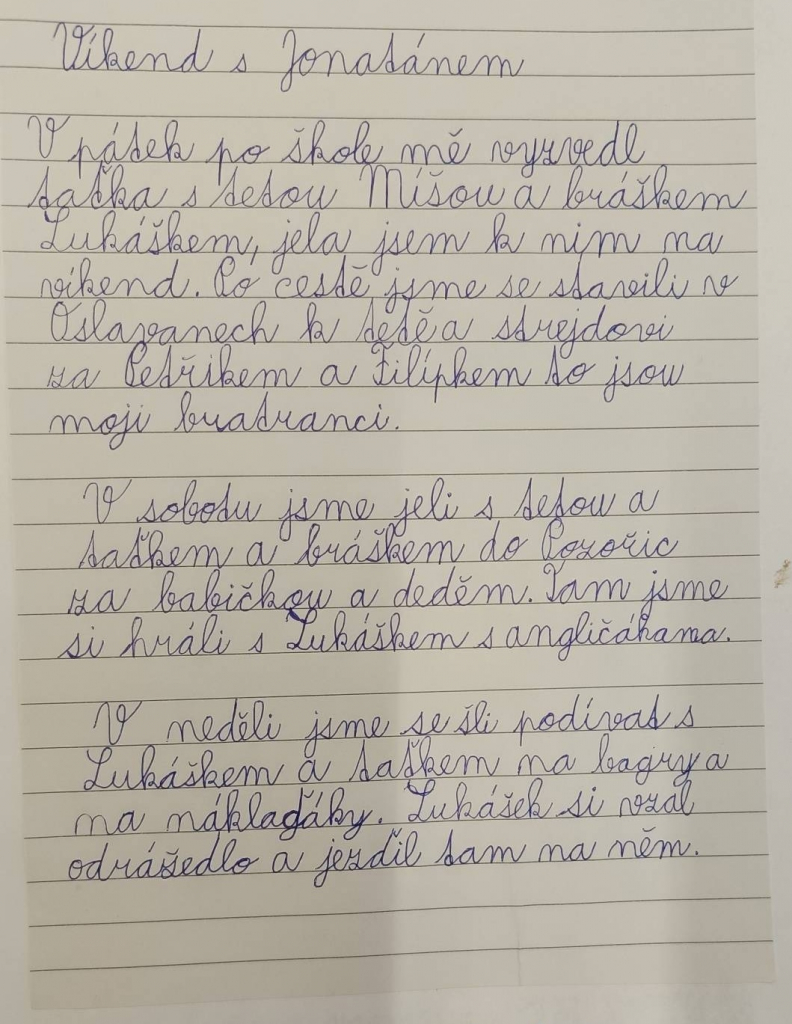 Víkend s Jonatánem
V pátek po škole mě vyzvedl
taťka s tetou Míšou a bráškem
Lukáškem, jela jsem k nim na
víkend. Po cestě jsme se stavili v
Oslavanech k tetě a strejdovi
za Petříkem a Filípkem to jsou
moji bratranci.
V sobotu jsme jeli s tetou a
taťkem a bráškem do Pozořic
za babičkou a deděm. Tam jsme
si hráli s Lukáškem s angličákama.
V neděli jsme se šli podívat s
Lukáškem a taťkem na bagry a
na náklaďáky. Lukášek si vzal
odrážedlo a jezdil tam na něm.